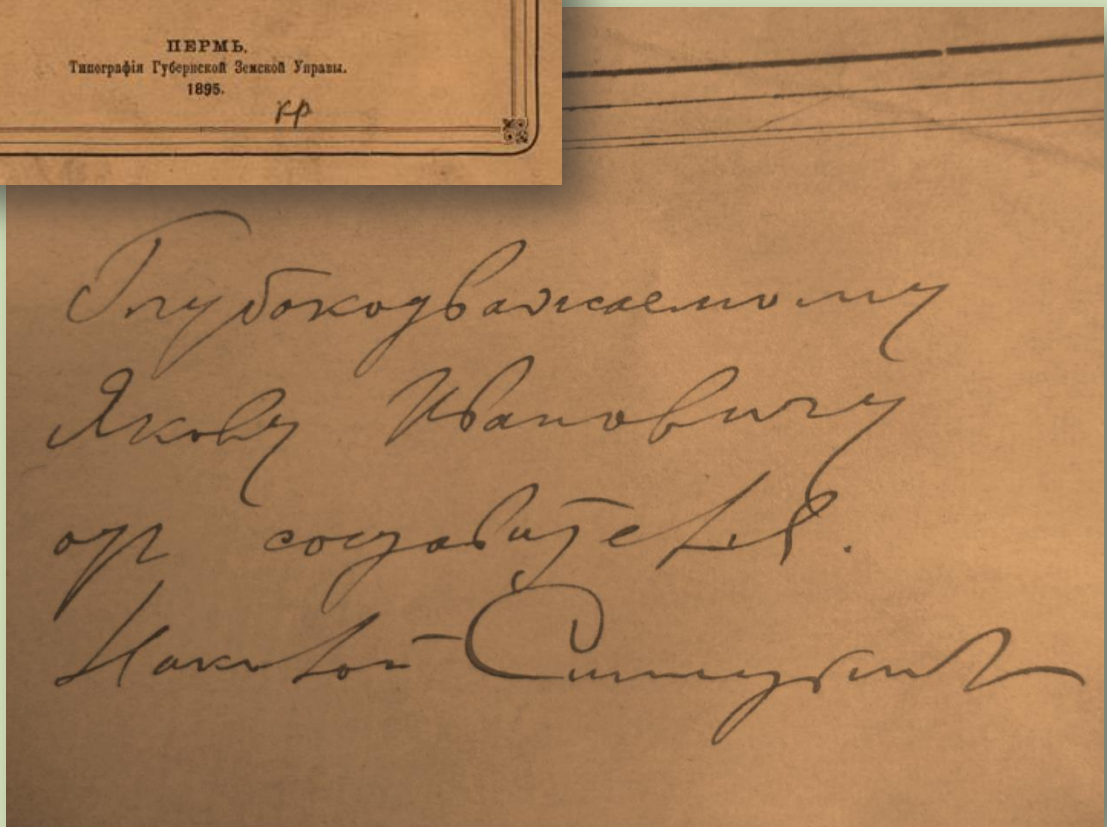 ПЕРМЬ.
Типографія Губернской Земской Управы.
1895.
кр
Глубокоуважаемому
Якову Ивановичу
от составителя.